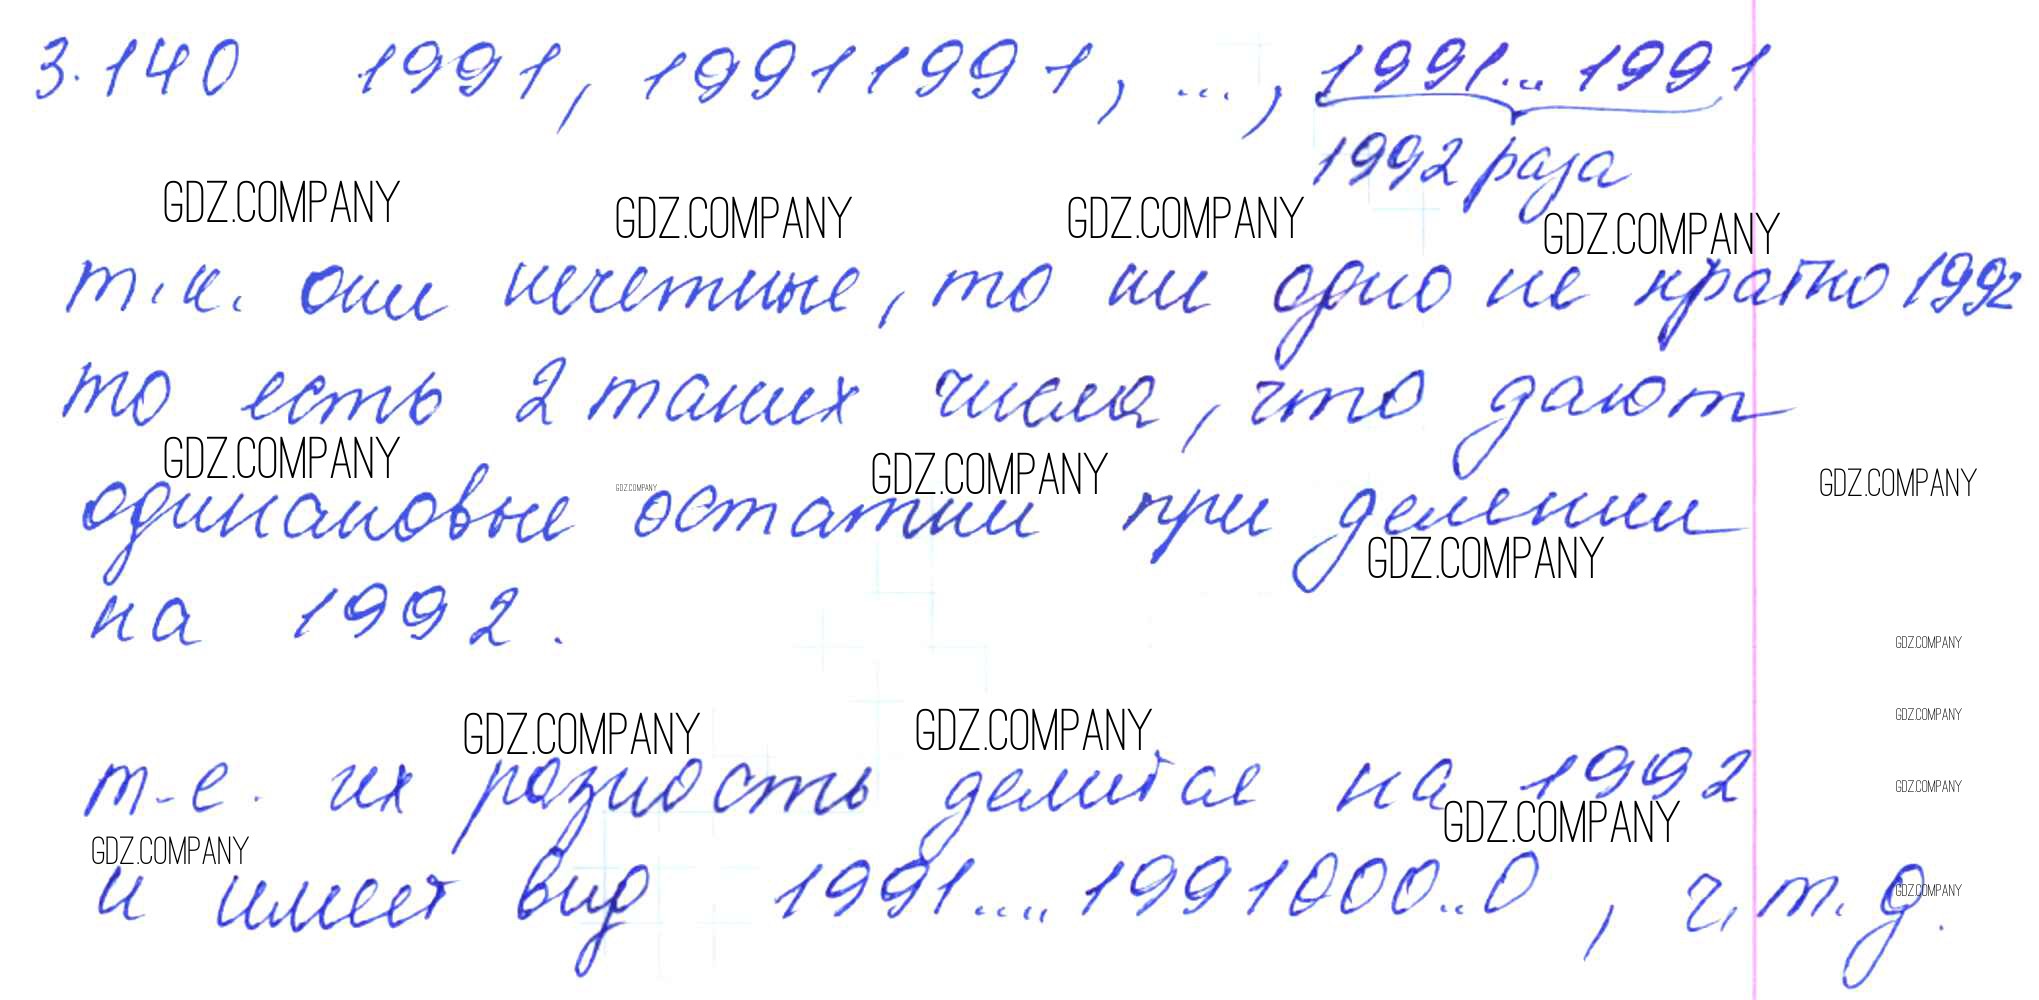 3.140 1991, 19911991, ..., 1991...1991
1992 раза
GDZ.COMPANY GDZ.COMPANY GDZ.COMPANY GDZ.COMPANY
т.к. они нечетные, то ни одно не кратно 1992
то есть 2 таких числа, что дают
GDZ.COMPANY GDZ.COMPANY GDZ.COMPANY GDZ.COMPANY
одинаковые остатки при делении
GDZ.COMPANY
на 1992.
GDZ.COMPANY
GDZ.COMPANY GDZ.COMPANY GDZ.COMPANY
т-е. их разность делится на 1992
GDZ.COMPANY
GDZ.COMPANY GDZ.COMPANY
и имеет вид 1991....1991000..0, ч.т.д.
GDZ.COMPANY